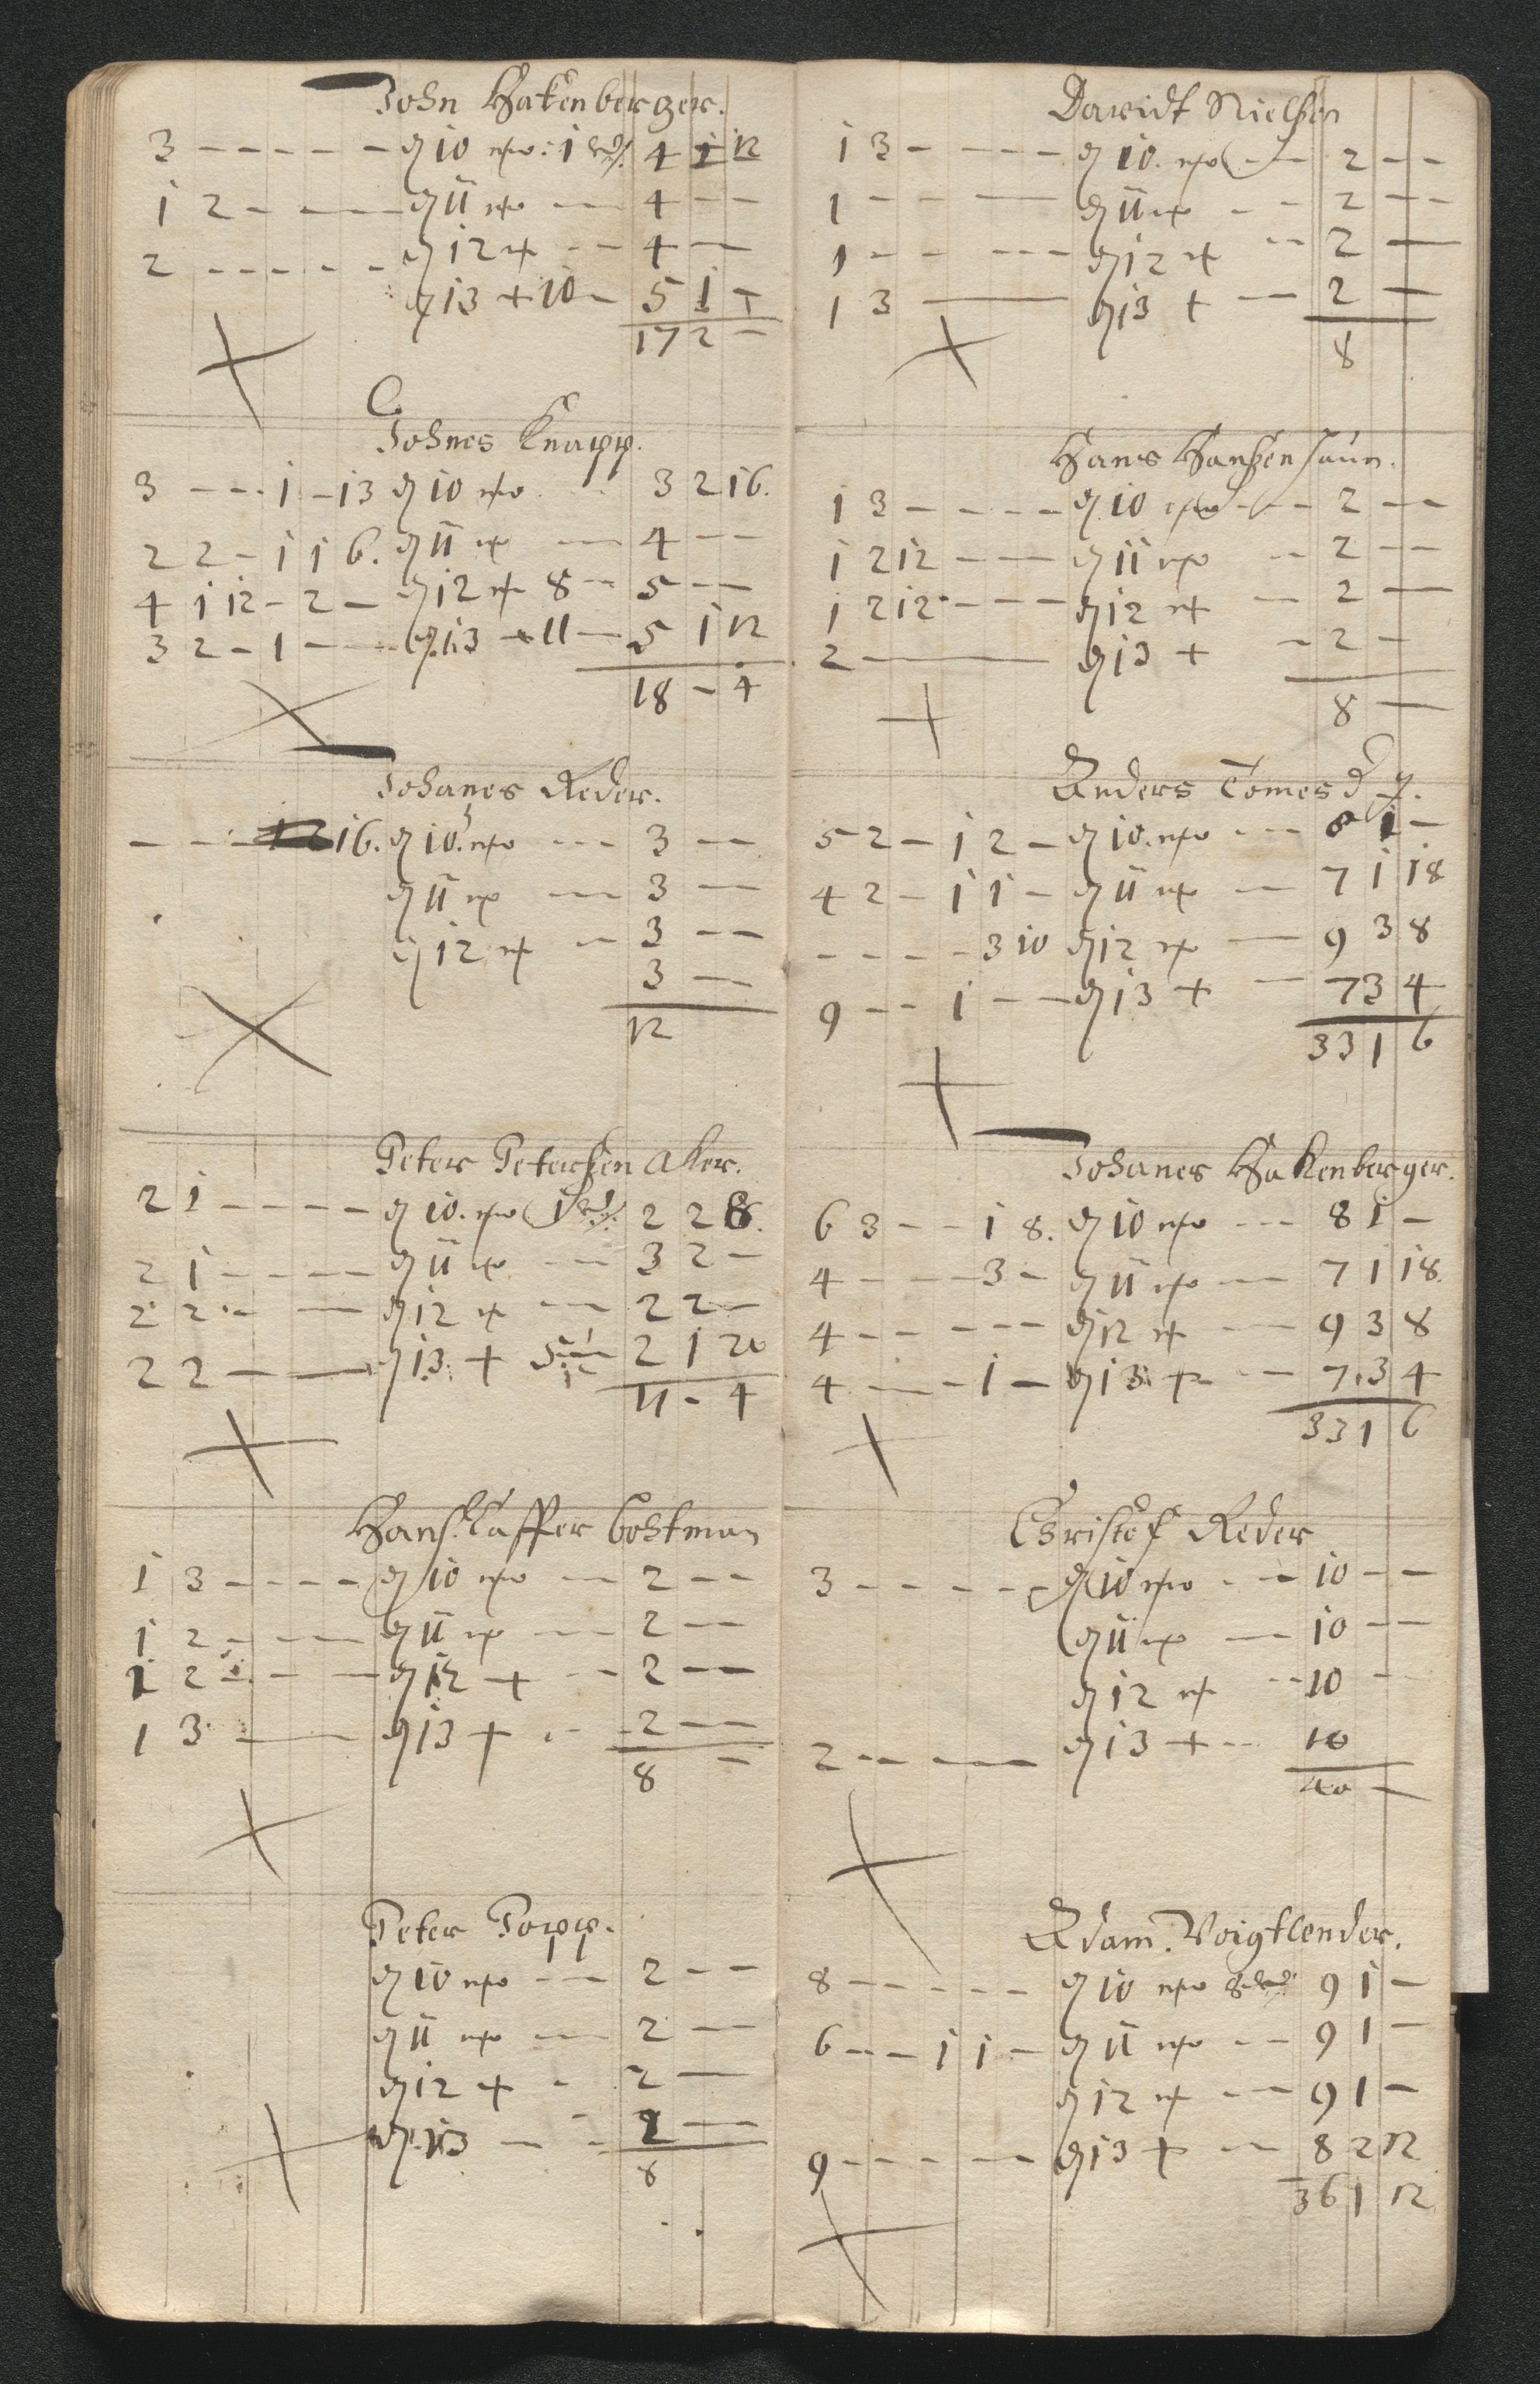 John Hakenberger.
3 - - - - - 10 1 4 1 12
1 2 - - - 11 4 - -
2 - - - - - 12 4 -
13 + 10 - 5 1 -
17 2 -
Johnes Knapp.
3 - - 1 - 13 10 3 2 16.
2 2 - 1 1 6. 11 4 - -
4 1 12 - 2 - 12 8 - 5 - -
3 2 - 1 - - 13 + 11 - 5 1 12
18 - 4
Johanes Reder.
- - - 16. 10 - - - 3 - -
11 - - 3 - -
12 - - 3 - -
3 - -
12
Peter Peterssen Aker.
2 1 - - - - 10. 2 2 8.
2 1 - - - - 11 - - 3 2 -
2 2 - - 12 - - 2 2 -
2 2 - - 13 + 2 1 20
11 - 4
Hans Casper Bostman
1 3 - - - - 10 - - 2 - -
1 2 - - - 11 - - 2 - -
1 2 - - - 12 + - - 2 - -
1 3 - 13 + - - 2 - -
8 -
Peter Popp.
10 - - - 2 - -
11 - - 2 - -
12 + - 2 -
13 - - 2 -
8
Davidt Nielsen
1 3 - - - - 10. - - 2 - -
1 - - - 11 - - 2 - -
1 - - - - - 12 - - 2 -
1 3 - 13 + - 2 -
8
Hans Hanssen
1 3 - - - - - 10 - - - 2 - -
1 2 12 - - 11 - 2 - -
1 2 12 - - - 12 - 2 -
2 - 13 + - 2 -
8 -
Anders Tomes
5 2 - 1 2 - 10. - - 8 1 -
4 2 - 1 1 - 11 - 7 1 18
- - - - 3 10 12 - 9 3 8
9 - - 1 - - 13 + - 7 3 4
33 1 6
Johanes Hakenberger.
6 3 - - 1 8. 10 - - - 8 1 -
4 - - - 3 - 11 - - 7 1 18.
4 - - - - - 12 - - 9 3 8
4 - - - 1 - 13 + - - 7 3 4
33 1 6
Christof Reder
3 - - - - - 10 - - 10 - -
11 - 10 - -
12 - - 10 -
2 - - - 13 + - - 10
40 -
Adam. Voigtlender.
8 - - - - - 10 8 9 1 -
6 - - - 1 1 - 11 - - 9 1 -
12 - - 9 1 -
9 - - - - - 13 + - 8 2 12
36 1 12